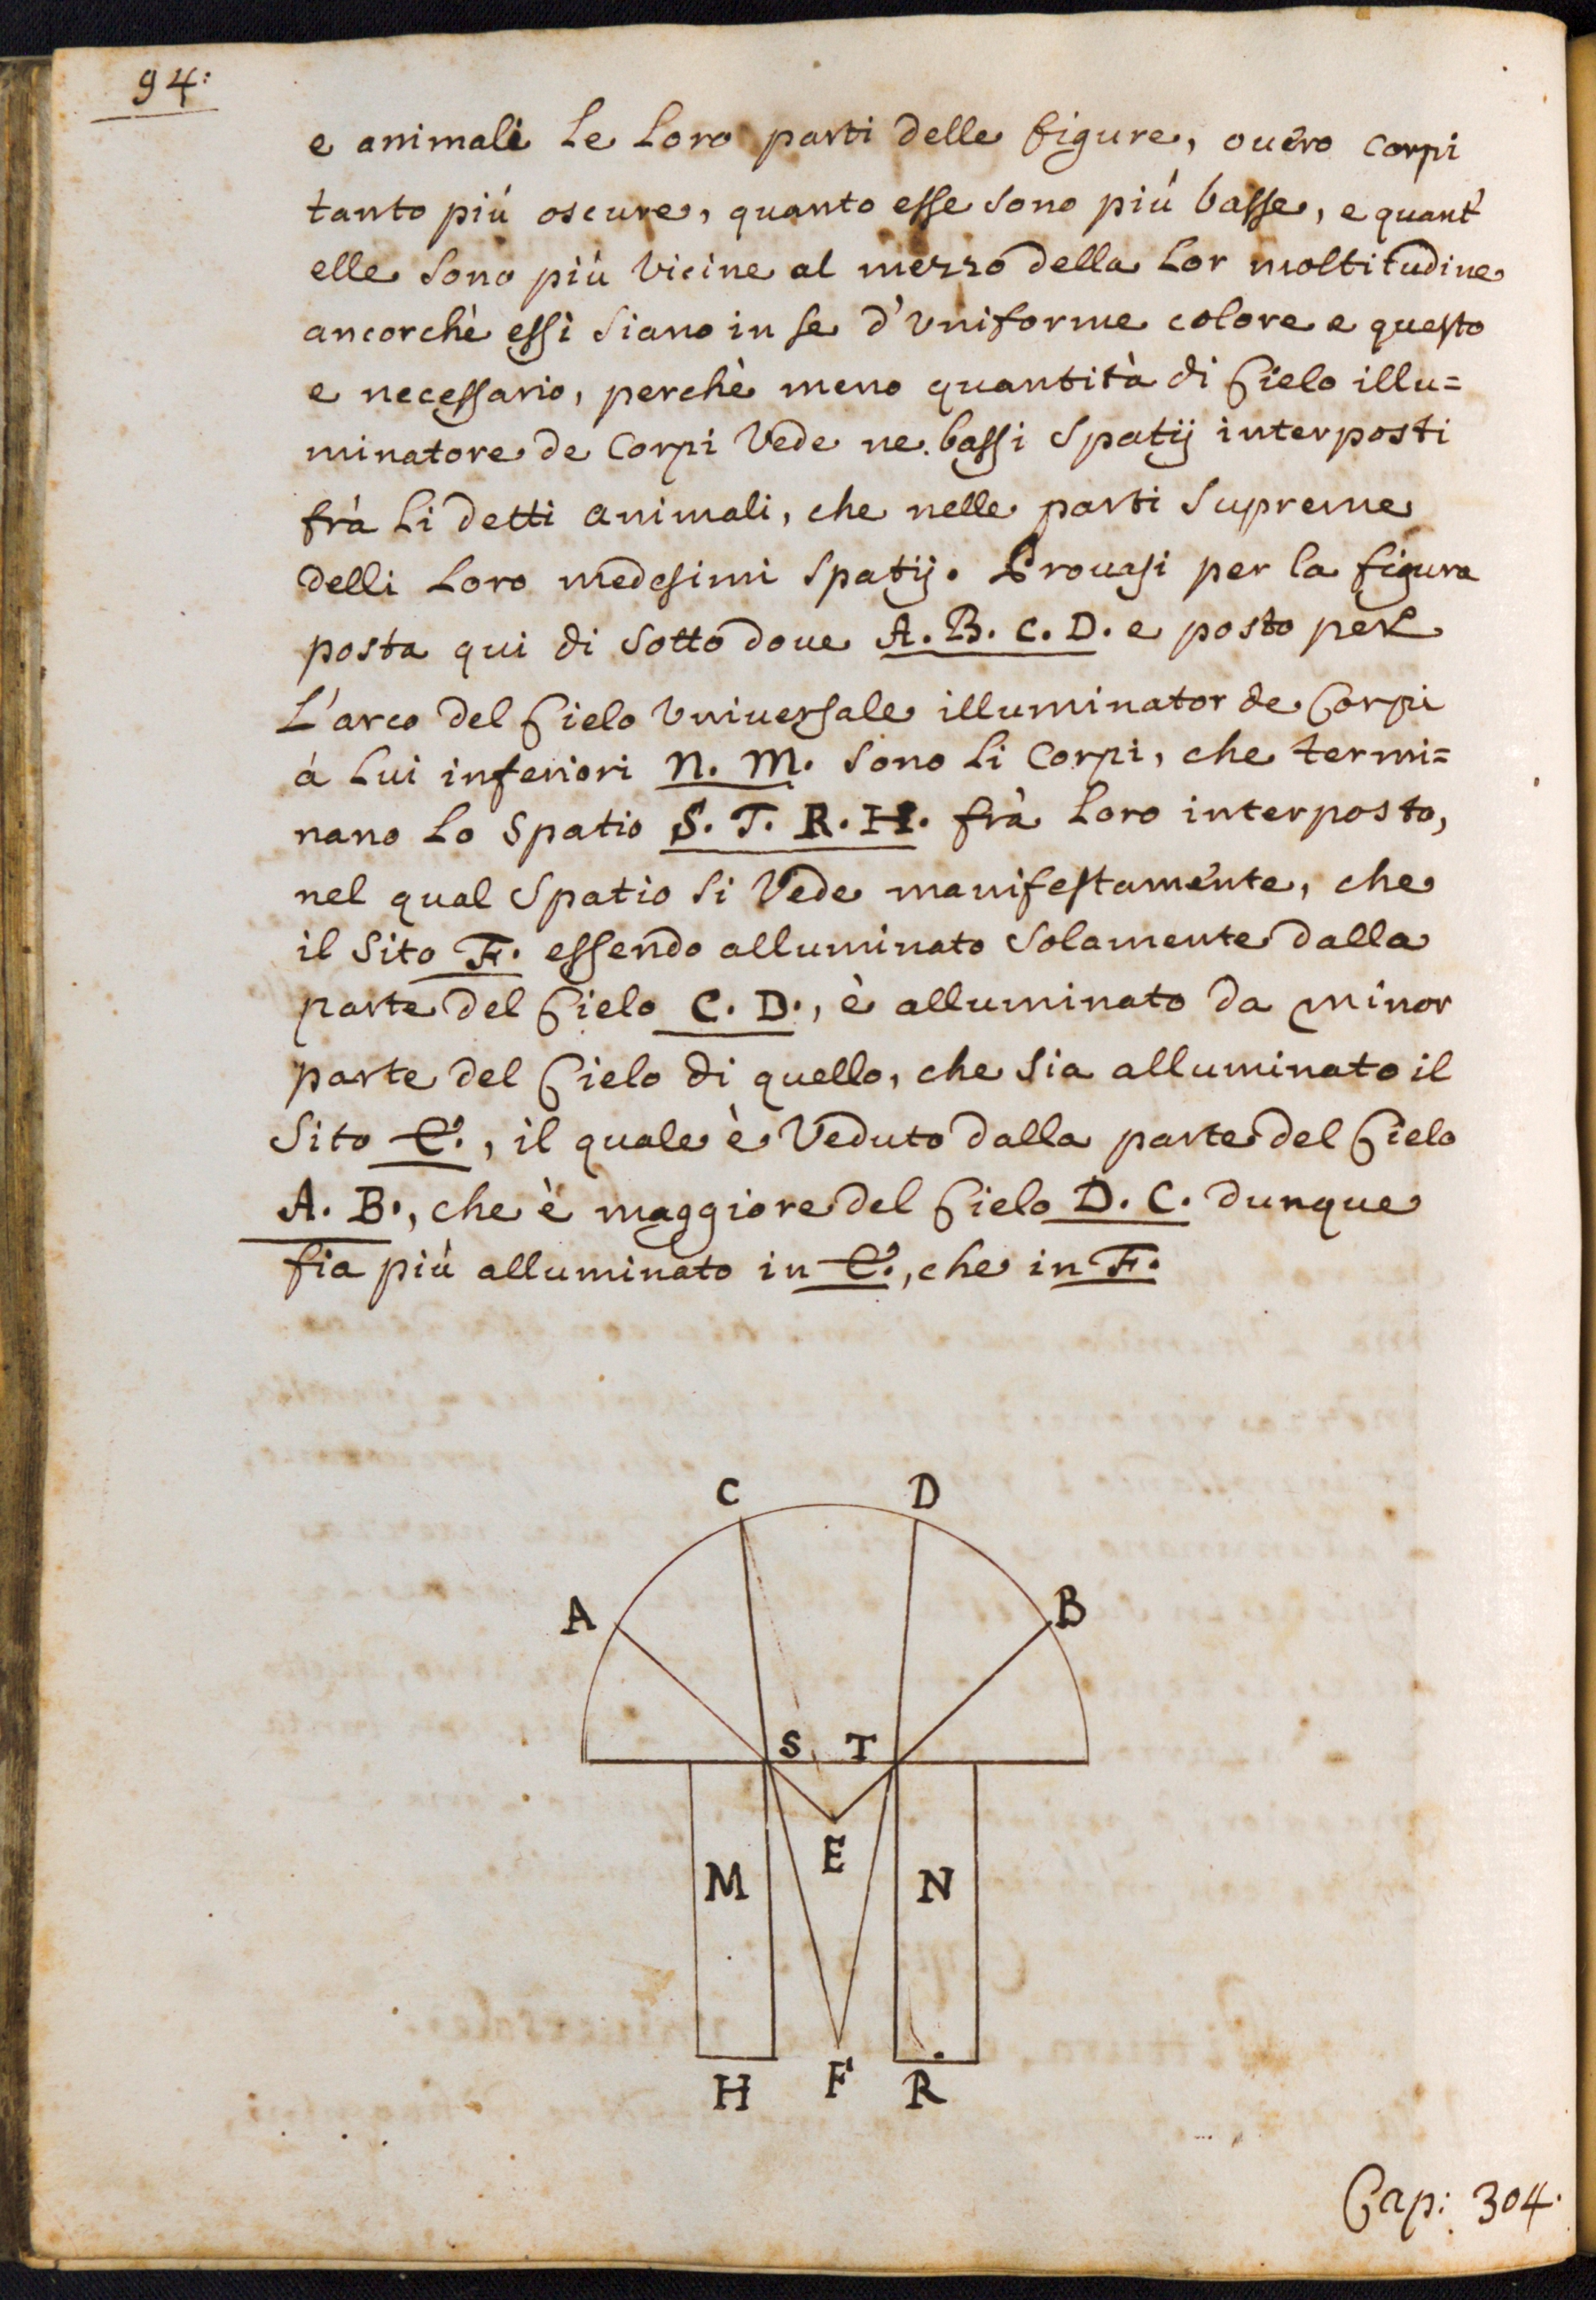 94:
e animali le loro parti delle figure, ouero corpi
tanto più oscure, quanto esse sono più basse, e quant'
elle sono più vicine al mezzo della lor moltitudine
ancorchè essi siano in se d'vniforme colore e questo
e necessario, perchè meno quantità di Cielo illu=
minatore de Corpi vede ne bassi spatij interposti
frà li detti animali, che nelle parti supreme
delli loro medesimi spatij. Prouasi per la figura
posta qui di sotto doue A. B. C. D. e posto per
L'arco del Cielo vniuersale illuminator de Corpi
à lui inferiori N. M. sono li Corpi, che termi=
nano lo spatio S. T. R. H. frà loro interposto,
nel qual spatio si vede manifestamente, che
il sito F. essendo alluminato solamente dalla
parte del Cielo C. D., è alluminato da minor
parte del Cielo di quello, che sia alluminato il
sito E., il quale è veduto dalla parte del Cielo
A. B., che è maggiore del Cielo D. C. dunque
fia più alluminato in E., che in F.
C D
A B
S T
E
M N
H F R
Cap: 304.